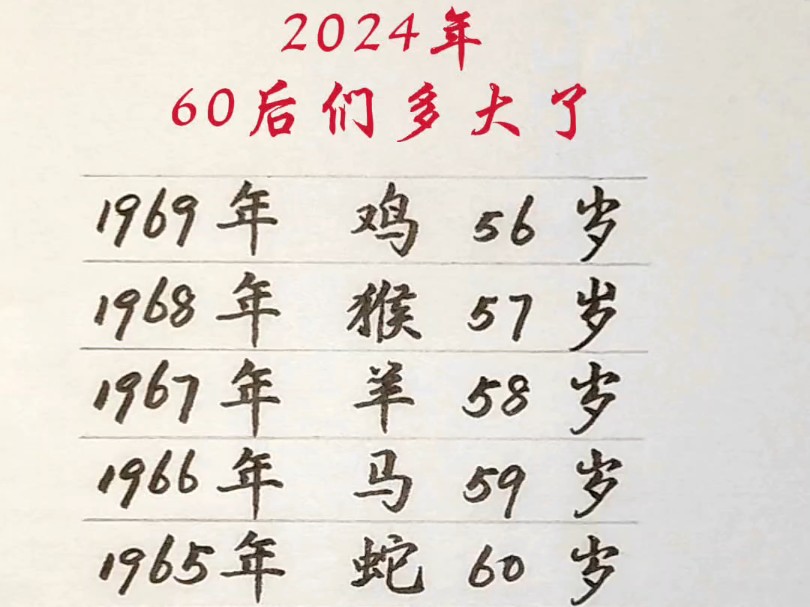 2024年
60后们多大了
1969年 鸡 56岁
1968年 猴 57岁
1967年 羊 58岁
1966年 马 59岁
1965年 蛇 60岁